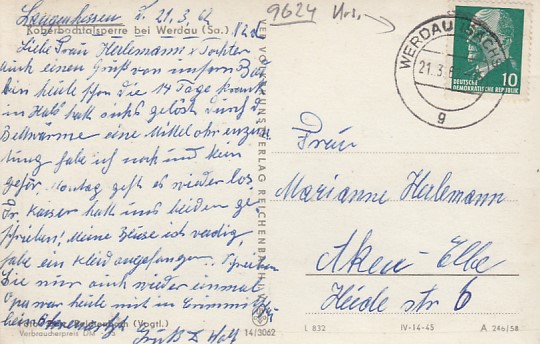 Langenhessen d. 21.3.62
Koberbachtalsperre bei Werdau (Sa.)
Liebe Frau Herlemann u Tochter
auch einen Gruß von unsern
bin heute schon die 14 Tage krank
im Hals hatt sichs gelöst durch
Bettwärme eine Mittelohrenzün
tung habe ich noch und kein
gehör. Montag geht es wieder los.
Fr. Kaiser hatt uns beiden ge-
schrieben! meine Bluse ist
habe ein Kleid angefangen. Schreiben
Sie nur auch wieder einmal
Opa war heute mit im
beim
Gruß
Reichenbach (Vogtl.)
Verbraucherpreis DM
14/3062
VEB VOLKSKUNSTVERLAG REICHENBACH
9624
WERDAU (SACHS)
21.3.6
g
10
DEUTSCHE
DEMOKRATISCHE REPUBLIK
Frau
Marianne Herlemann
Aken-Elbe
Heide str 6
L 832
IV-14-45
A 246/58